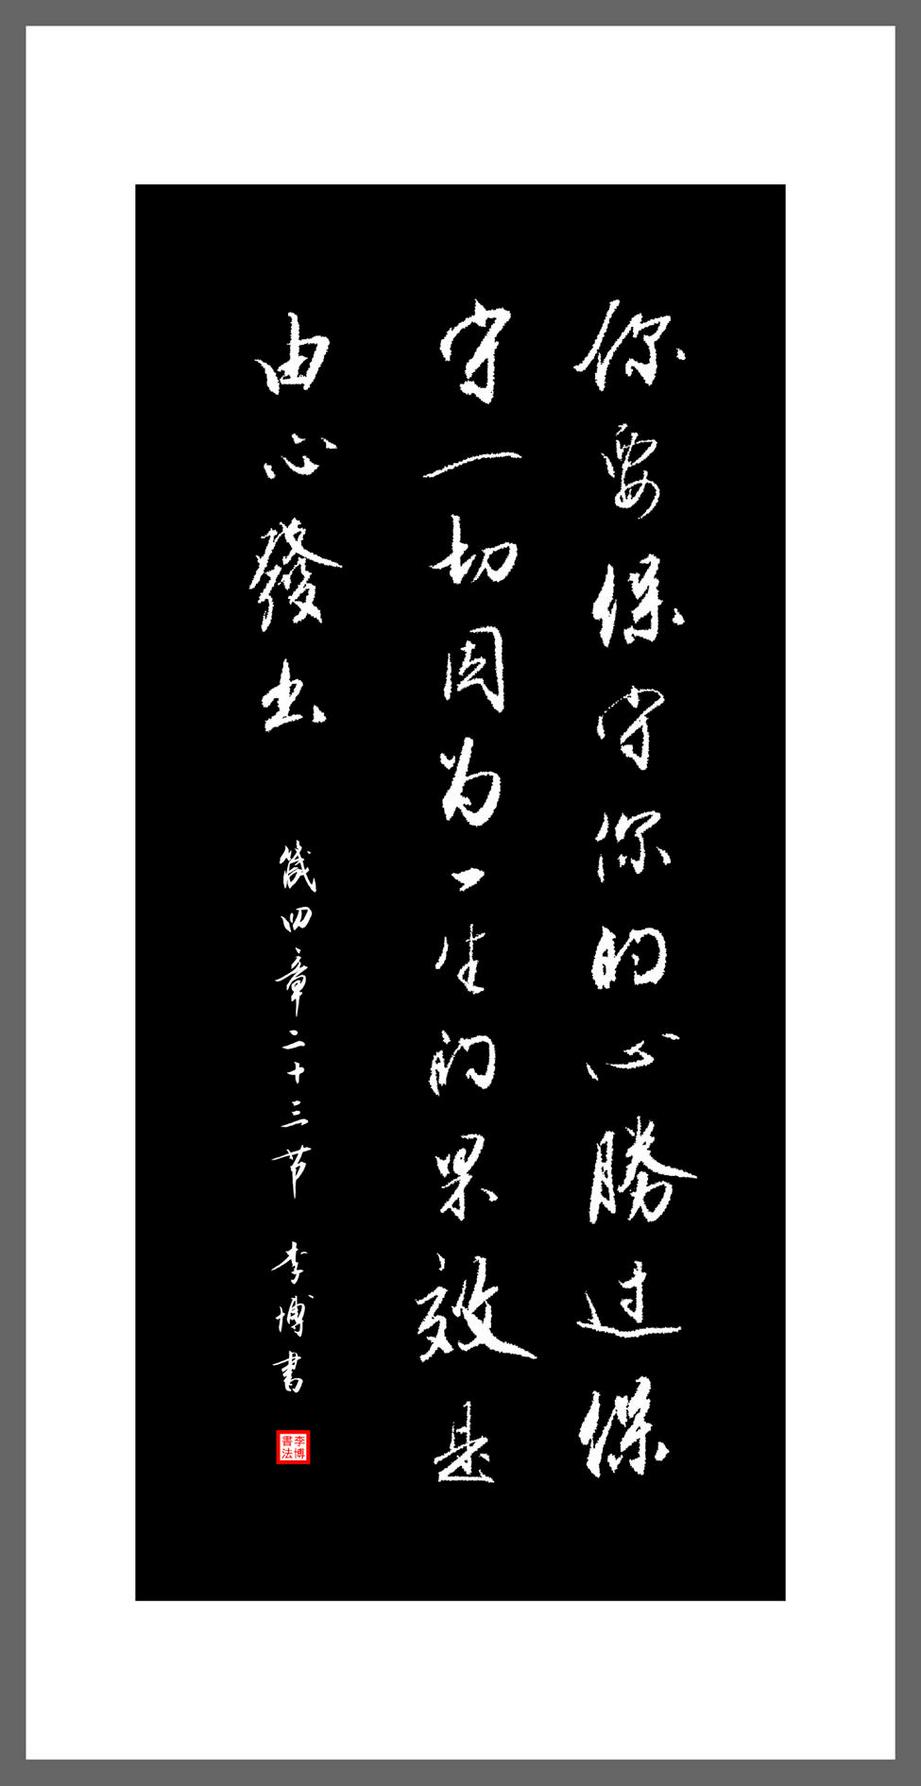 你要保守你的心勝过保
守一切因为一生的果效是
由心發出
箴四章二十三节 李博书
李博書法